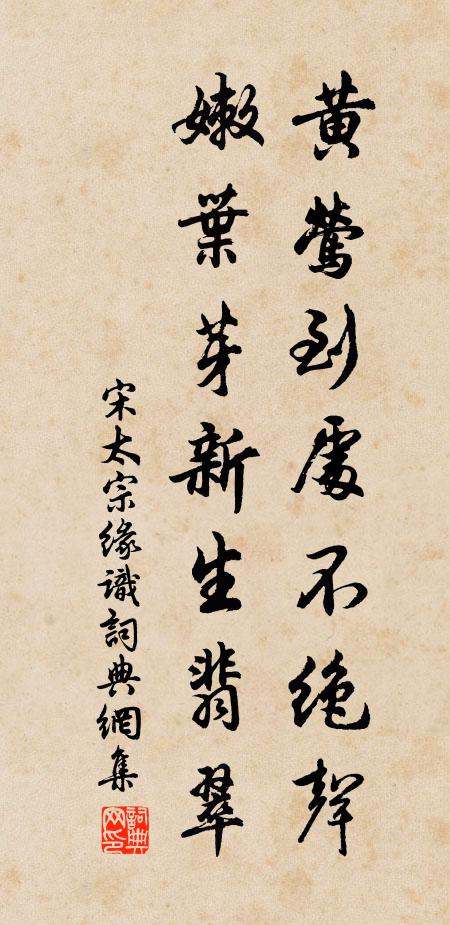 黄鶯到處不絶聲
嫩葉芽新生翡翠
宋太宗緣識詞典網集
詞典网印